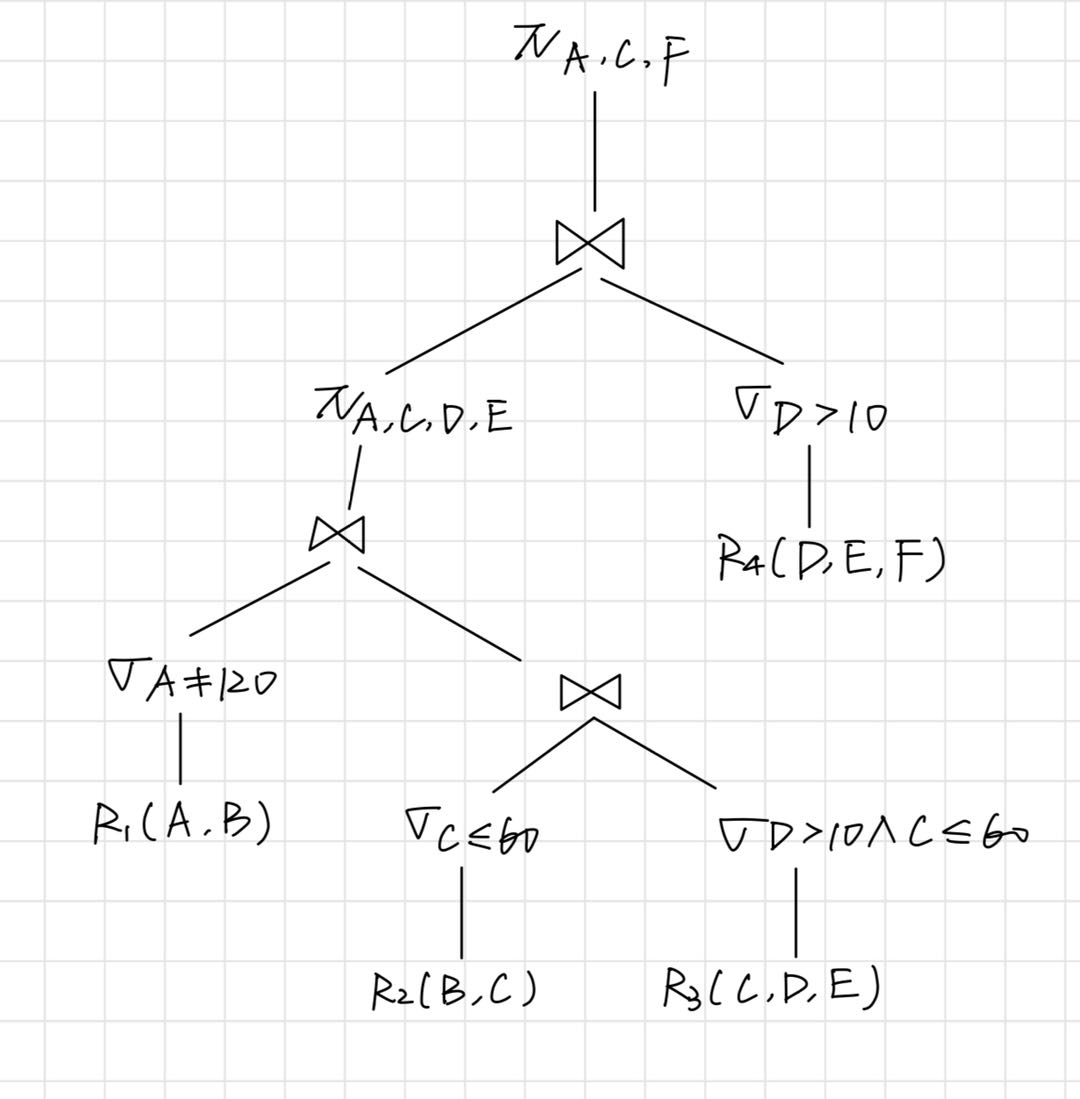 π A,C,F
⋈
π A,C,D,E
σ D>10
⋈
R4(D,E,F)
σ A≠120
⋈
R1(A,B)
σ C≤60
σ D>10∧C≤60
R2(B,C)
R3(C,D,E)